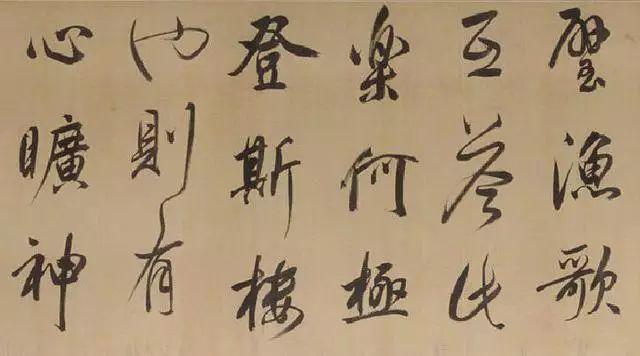 璧漁歌
互荅此
樂何極
登斯樓
也則有
心曠神